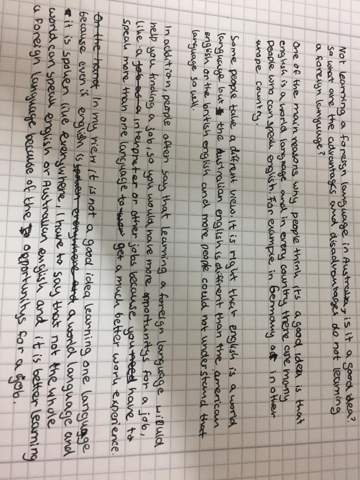 Not learning a foreign language in Australia, is it a good idea?
so what are the advantages and disadvantages do not learning
a foreign language?
One of the main reasons why people think it's a good idea is that
english is a world language and in every country there are many
people who can speak english. For example in Germany or in other
europe country.
Some people take a different view. It is right that english is a world
language but the Australian english is diffrent than the american
english or the british english and more people could not understand that
language so well.
In addition, people often say that learning a foreign language would
help you finding a job, so you would have more opportunitys for a job,
like a interpreter or other jobs because you have to
speak more than one language to get a much better work experience.
In my view it is not a good idea learning one language
because even if english is a world language and
it is spoken like everywhere, I have to say that not the whole
world can speak english or Australian english and it is better learning
a foreign language because of the opportunitys for a job.